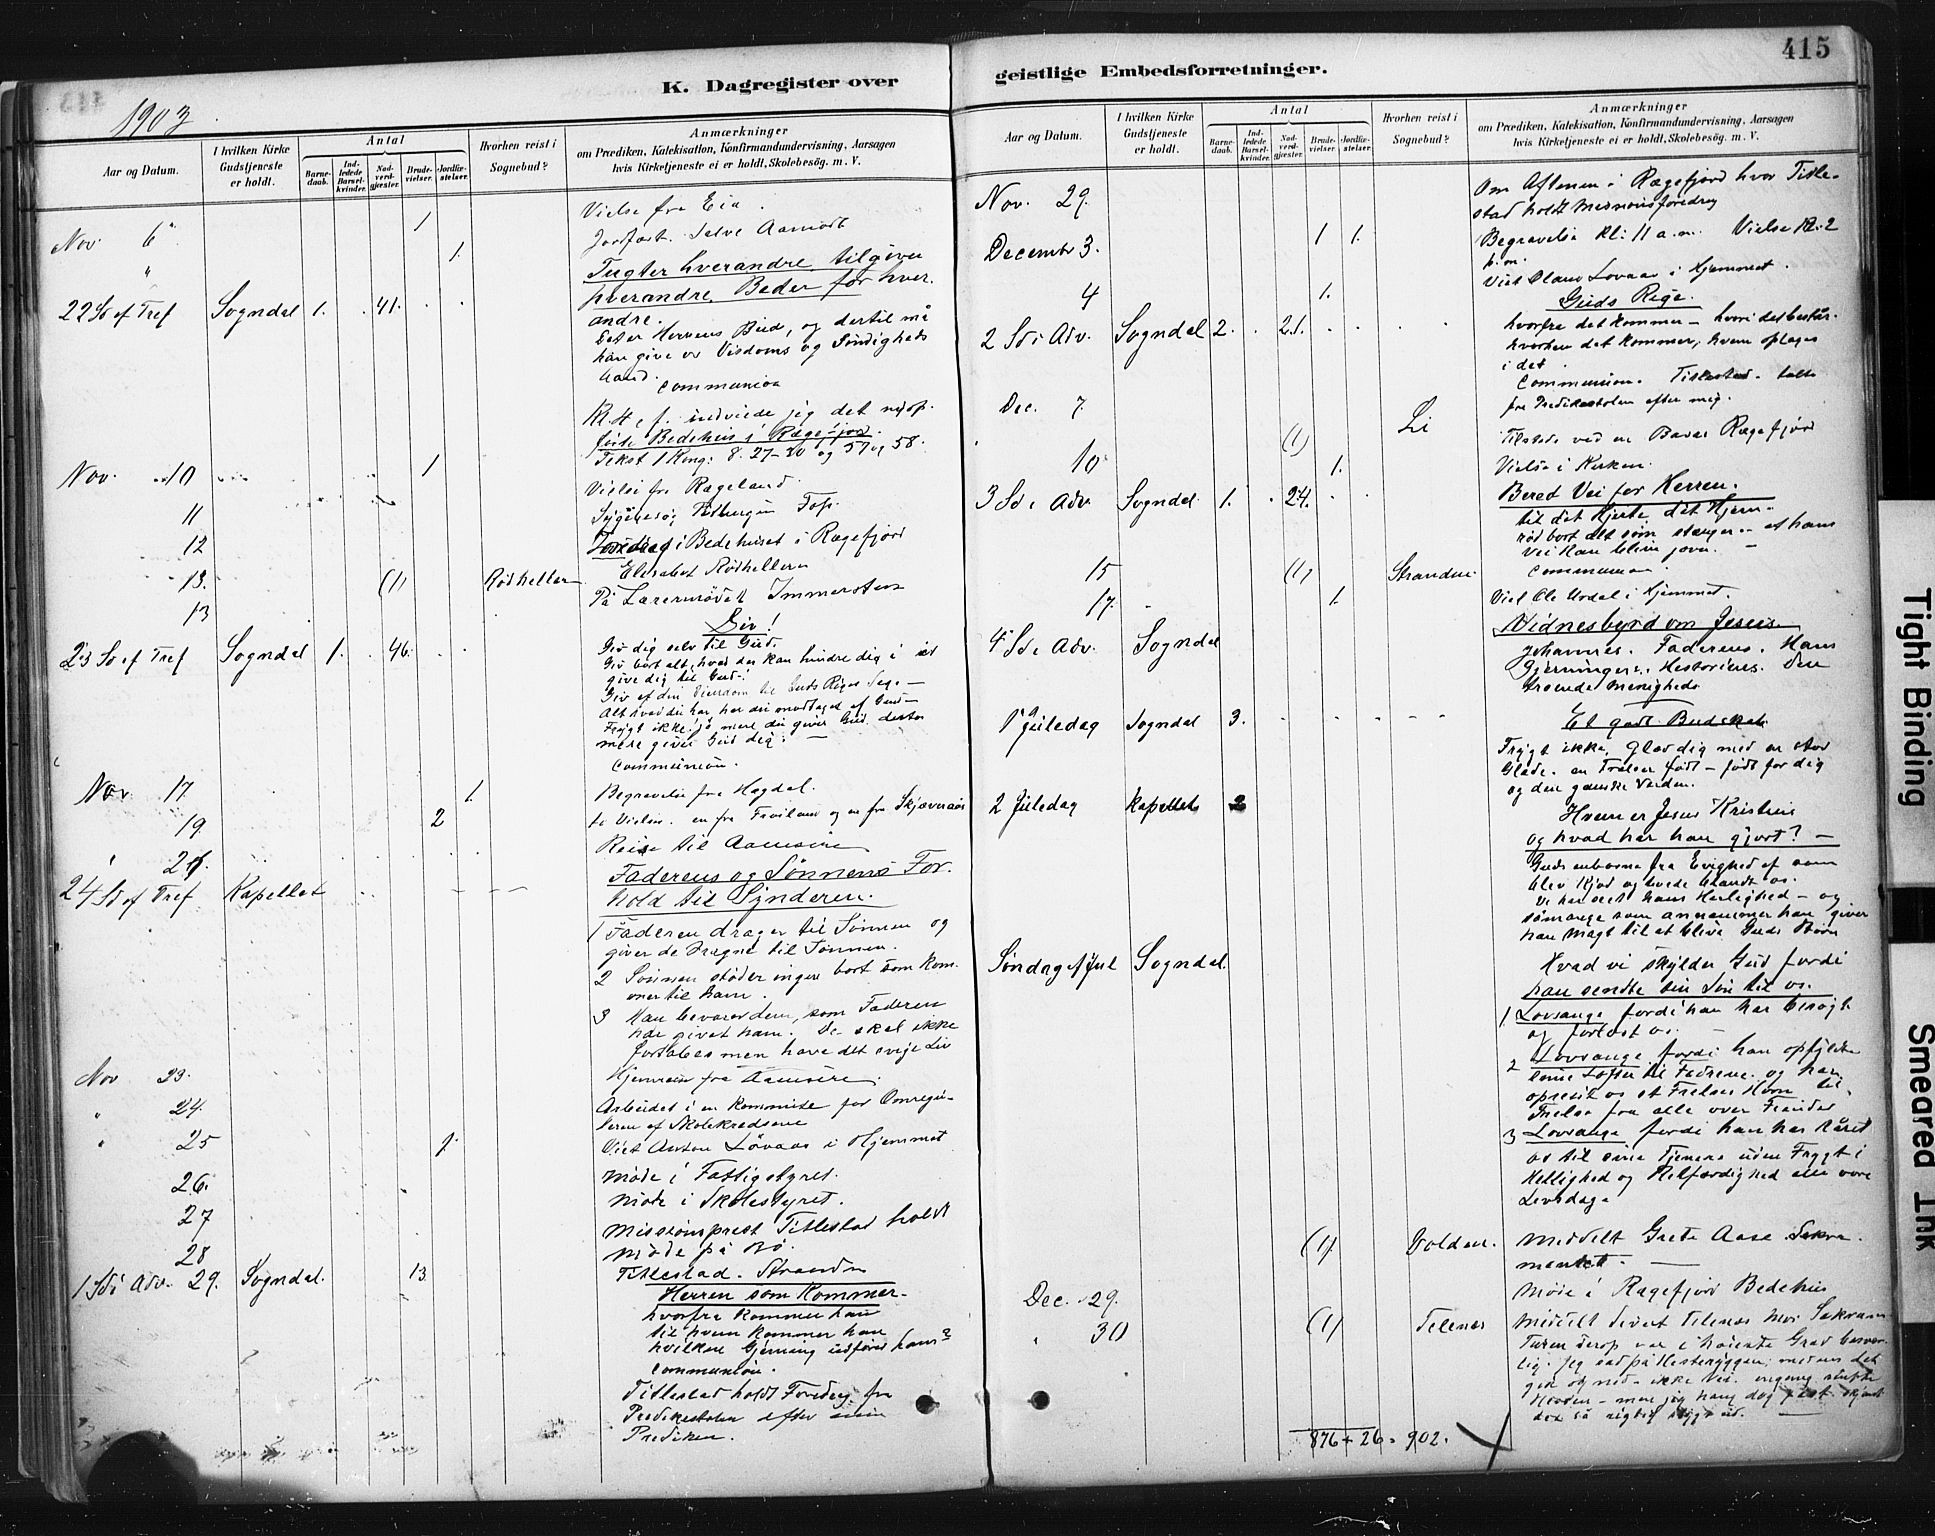 415
K. Dagregister over geistlige Embedsforretninger.
1903
Aar og Datum.
I hvilken Kirke Gudstjeneste er holdt.
Antal
Barnedaab.
Indledede Barselkvinder.
Nadverdgjester.
Brudevielser.
Jordfæstelser.
Hvorhen reist i Sognebud?
Anmærkninger
om Prædiken, Katekisation, Konfirmandundervisning, Aarsagen
hvis Kirketjeneste ei er holdt, Skolebesøg. m. V.
Nov. 6 1 Vielse fra Eia.
" 1. Jordfæst. Salve Aamodt
22 Sd ef Tref Sogndal 1. 41. Tugter hverandre, tilgiver
hverandre, Beder for hver-
andre.
Det er Herrens Bud, og dertil må
han give os Visdoms og Sindigheds
Aand.
Communion
Kl. 4 e. f. indviede jeg det nyop-
førte Bedehus i Rægefjord.
Tekst 1 Kong: 8. 27-30 og 57 og 58.
Nov. 10 1 Vielse fra Rægeland.
11 Sygebesøg
12 Foredrag i Bedehuset i Rægefjord
13. (1) Rødhellen Elisabet Rødhellen
13 På Lærermødet Immerstein
Giv!
23 Sd ef Tref Sogndal 1. 46. Giv dig selv til Gud.
Giv bort alt, hvad der kan hindre dig i at
give dig til Gud!
Giv af din Eiendom til Guds Riges Sag -
Alt hvad du har, har du modtaget af Gud -
Frygt ikke! jo mere du giver Gud, desto
mere giver Gud dig. -
Communion.
Nov 17 1. Begravelse fra Hogdal.
19 2 to Vielser. en fra Frøiland og en fra Skjævraas
21 Reise til Aamsire
24 Sd ef Tref Kapellet Faderens og Sønnens For-
hold til Synderen.
1 Faderen drager til Sønnen og
giver de Dragne til Sønnen.
2 Sønnen støder ingen bort som kom-
mer til ham.
3 Han bevarer dem, som Faderen
har givet ham. De skal ikke
fortabes men have det evige Liv
Nov 23. Hjemreise fra Aamsire.
" 24. Arbeidet i en Kommite for Omregu-
leren af Skolekredsene
" 25 1. Viet Anton Løvaas i Hjemmet
26. Møde i Fattigstyret.
27 Møde i Skolestyret.
28 Missionsprest Titlestad holdt
Møde på Bø.
1 Sd i Adv. 29. Sogndal. 13 Titlestad. Stranden
Herren som kommer.
hvorfra kommer han
til hvem kommer han
hvilken Gjerning udfører han?
Communion.
Titlestad holdt Foredrag fra
Predikestolen efter min
Prediken.
Aar og Datum.
I hvilken Kirke Gudstjeneste er holdt.
Antal
Barnedaab.
Indledede Barselkvinder.
Nadverdgjester.
Brudevielser.
Jordfæstelser.
Hvorhen reist i Sognebud?
Anmærkninger
om Prædiken, Katekisation, Konfirmandundervisning, Aarsagen
hvis Kirketjeneste ei er holdt, Skolebesøg. m. V.
Nov. 29. Om Aftenen i Rægefjord hvor Title-
stad holdt Missionsforedrag
Decembr 3. 1 1. Begravelse Kl: 11 a.m. Vielse Kl. 2
p.m.
4 1. Viet Olaus Lovaas i Hjemmet.
Guds Rige.
2 Sd i Adv. Sogndal 2. 21. hvorfra det kommer - hvori det består.
hvorhen det kommer, hvem optages
i det
Communion. Titlestad talte
fra Predikestolen efter mig.
Dec. 7. (1) Li Tilstede ved en Bazar Rægefjord
10 1. Vielse i Kirken.
3 Sd i Adv. Sogndal 1. 24. Bered Vei for Herren.
til det Hjerte, det Hjem -
rød bort alt som stænger - at hans
Vei kan blive jevn. -
Communion
15 (1) Stranden
17. 1. Viet Ole Urdal i Hjemmet.
4 Sd i Adv. Sogndal Vidnesbyrd om Jesus
Johannes. Faderens. Hans
Gjerningers. Historiens. Den
troende Menigheds
1 Juledag Sogndal 3. Et godt Budskab
Frygt ikke, Glæd dig med en stor
Glæde. en Frelser født - født for dig
og den ganske Verden.
2 Juledag Kapellet 2 Hvem er Jesus Kristus
og hvad har han gjort? -
Guds enbaarne fra Evighed af som
blev Kjød og boede blandt os.
Vi har seet hans Herlighed - og
såmange som annammer ham giver
han Magt til at blive Guds Børn
Søndag ef Jul Sogndal. Hvad vi skylder Gud fordi
han sendte sin Søn til os.
1 Lovsange fordi han har besøgt
og forløst os. -
2 Lovsange fordi han opfyldte
sine Løfter til Fædrene og har
opreist os et Frelses Horn til
Frelse fra alle vore Fiender
3 Lovsange fordi han har kåret
os til sine Tjenere uden Frygt i
Hellighed og Retfærdighed alle vore
Levedage
(1) Dolden. Meddelt Grete Aase Sakra-
mentet. -
Dec. 29. Møde i Rægefjord Bedehus
" 30 (1) Telenes Meddelt Sivert Telenes Mor Sakram
Turen derop var i høieste Grad besvær-
lig. Jeg sad på Hesteryggen, medens det
gik op og ned - ikke Vei. engang
Hesten - men jeg hang dog fast
876 + 26 = 902.
Tight Binding
Smeared Ink